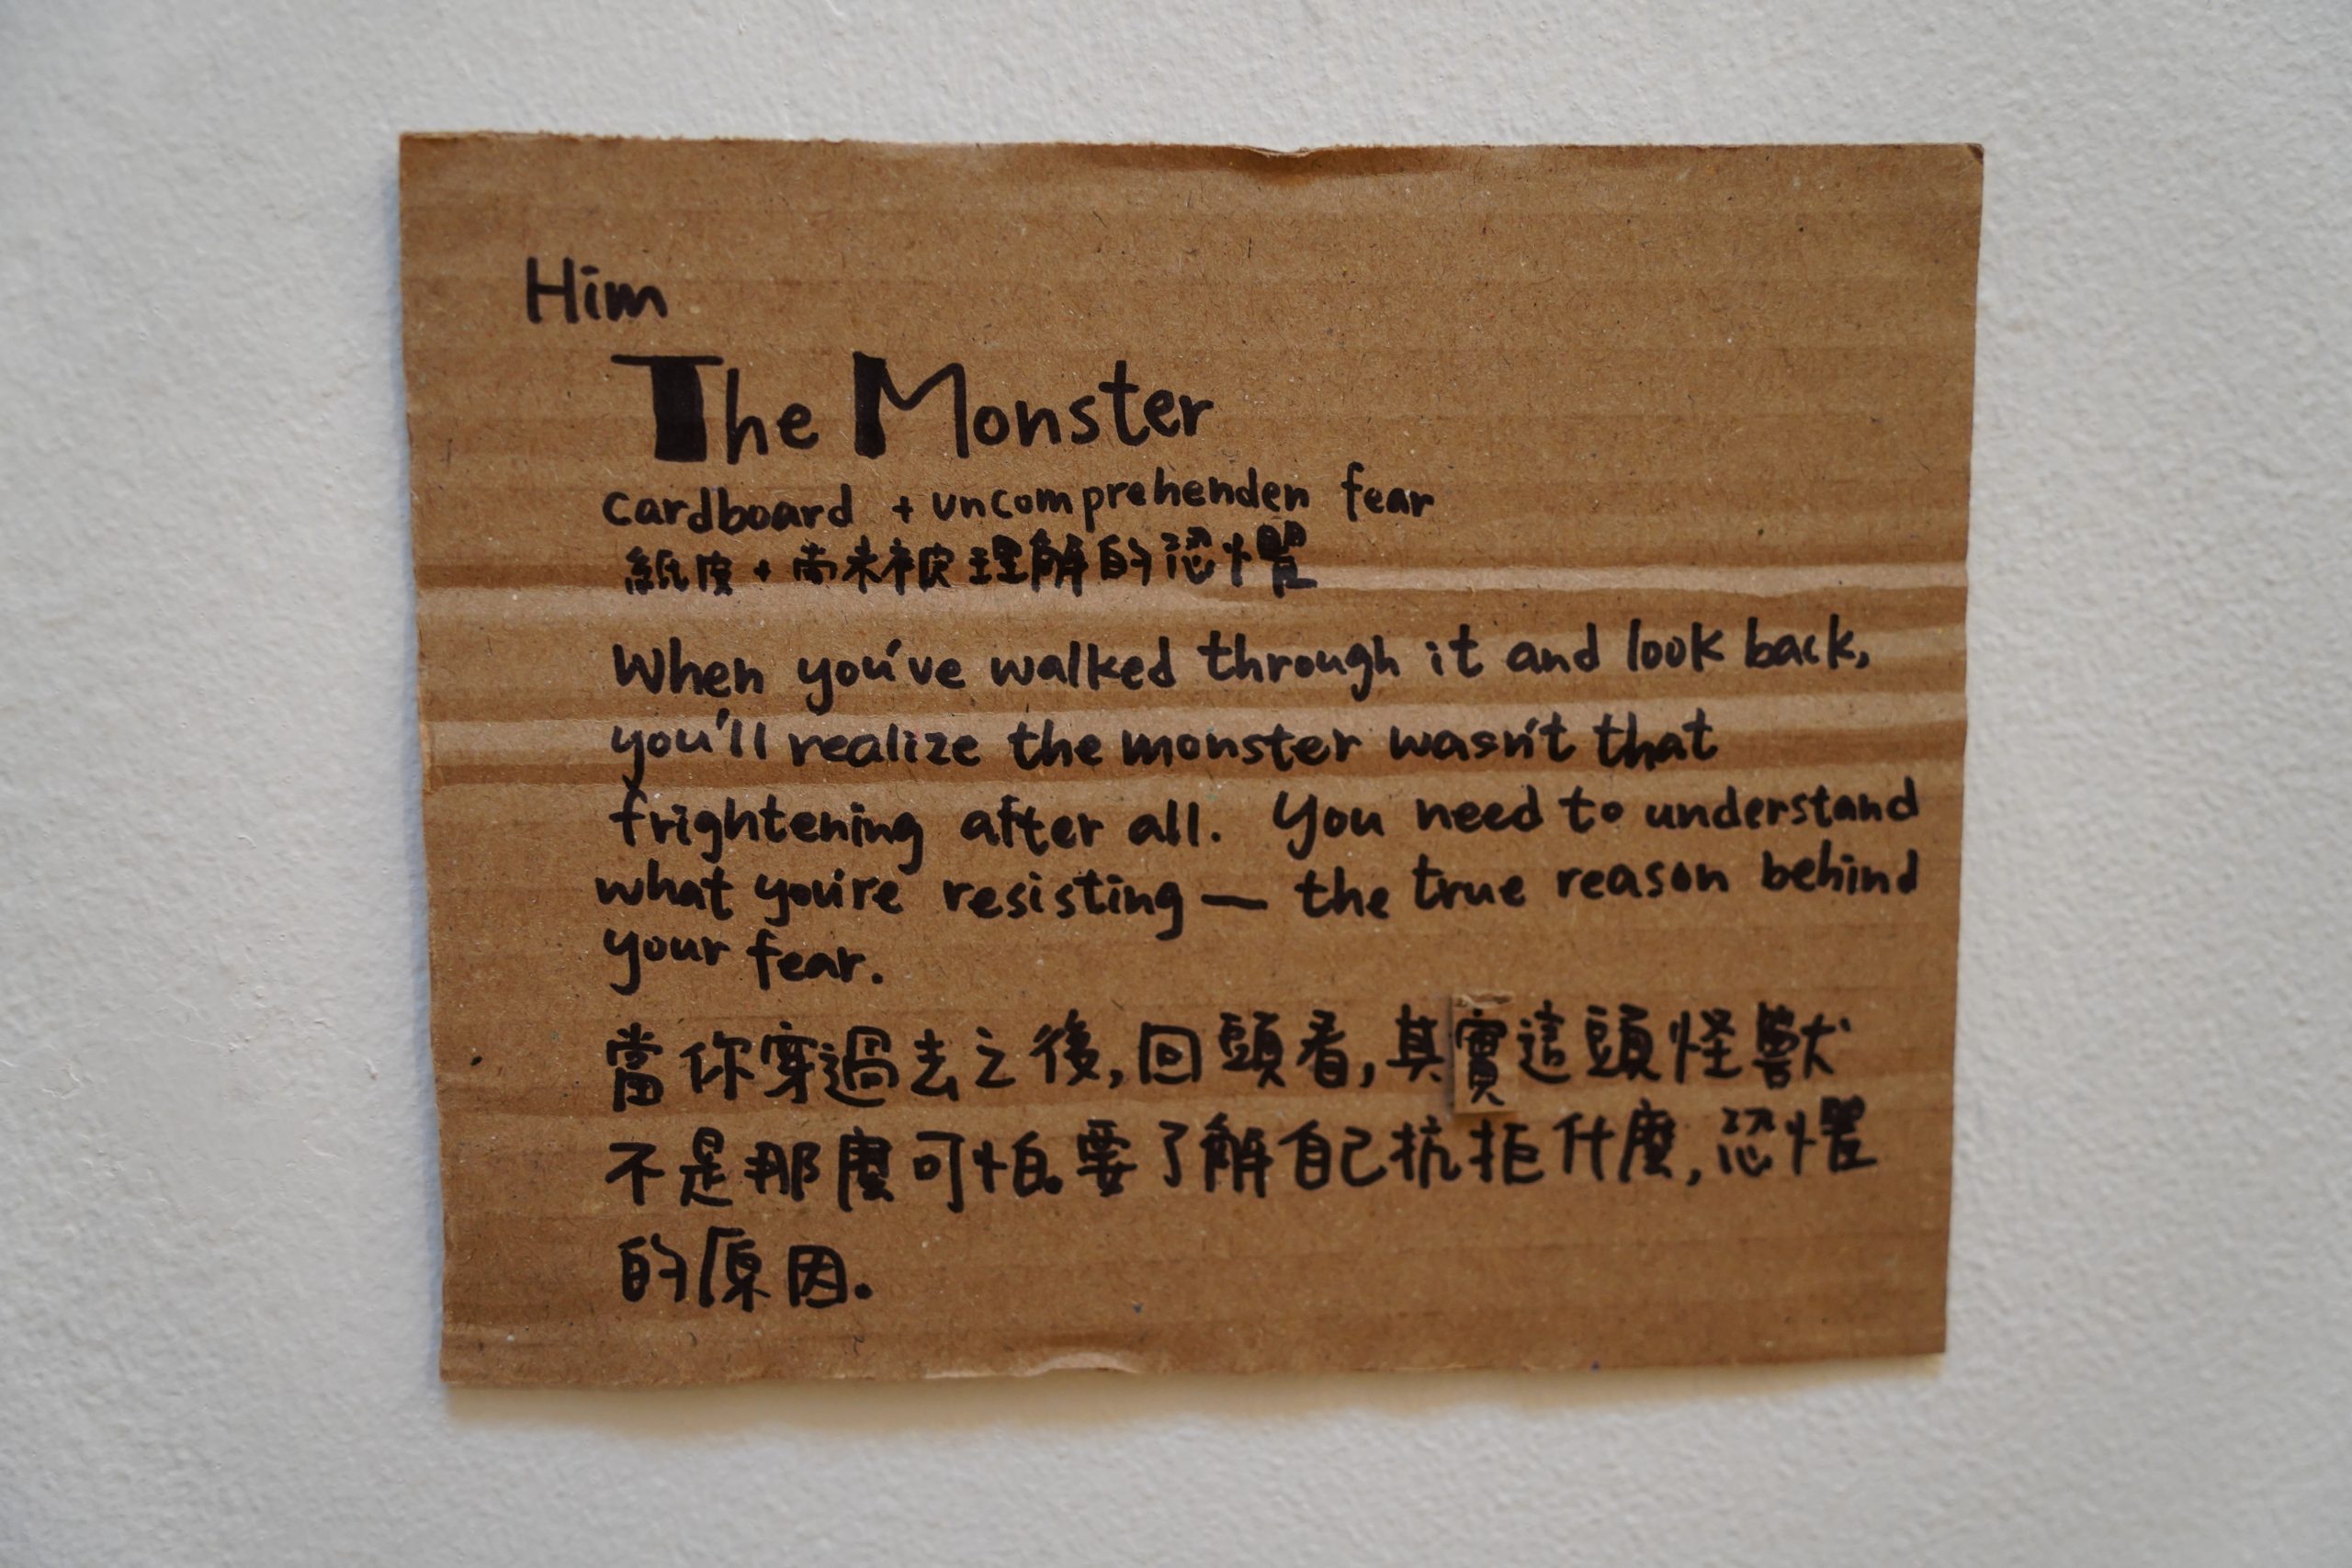 Him
The Monster
cardboard + uncomprehenden fear
紙皮 + 尚未被理解的恐懼
When you've walked through it and look back,
you'll realize the monster wasn't that
frightening after all. You need to understand
what you're resisting — the true reason behind
your fear.
當你穿過去之後,回頭看,其實這頭怪獸
不是那麼可怕。要了解自己抗拒什麼,恐懼
的原因.